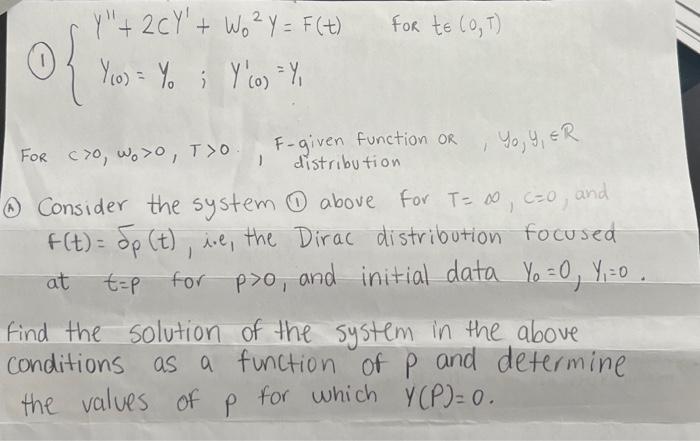 ① { Y'' + 2cY' + W₀² Y = F(t)     FOR t∈ (0,T)
Y(0) = Y₀ ; Y'(0) = Y₁
FOR c>0, W₀>0, T>0 , F-given function OR distribution , y₀, y₁ ∈ R
Ⓐ Consider the system ① above for T= ∞, c=0, and
f(t) = δp(t), i.e, the Dirac distribution focused
at t=p for p>0, and initial data Y₀ =0, Y₁=0.
Find the solution of the system in the above
conditions as a function of p and determine
the values of p for which Y(P)=0.